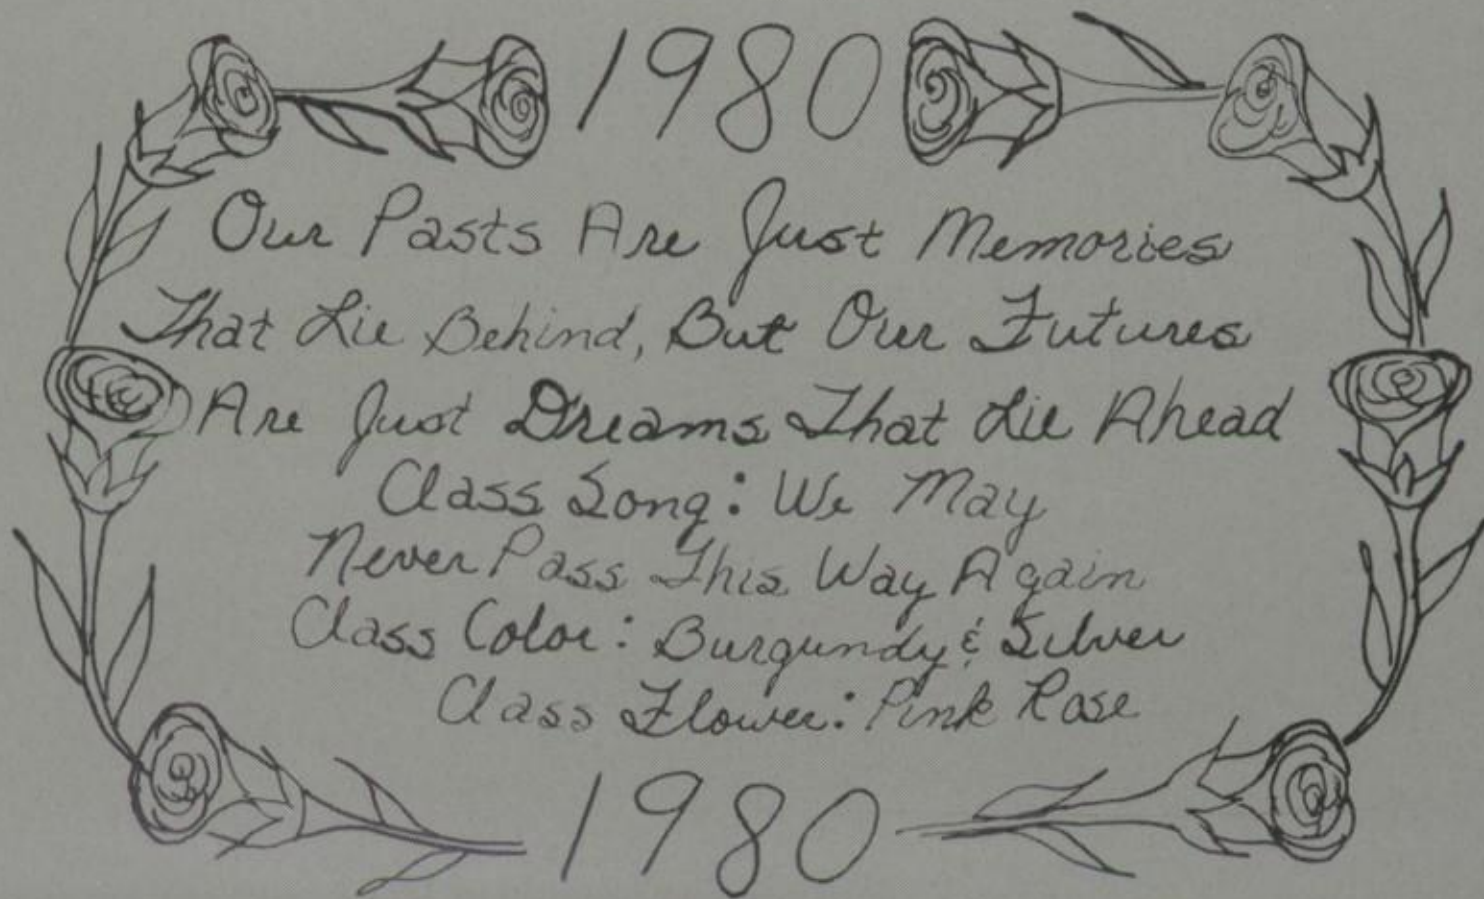 1980
Our Pasts Are Just Memories
That Lie Behind, But Our Futures
Are Just Dreams That Lie Ahead
Class Song: We May
Never Pass This Way Again
Class Color: Burgundy & Silver
Class Flower: Pink Rose
1980